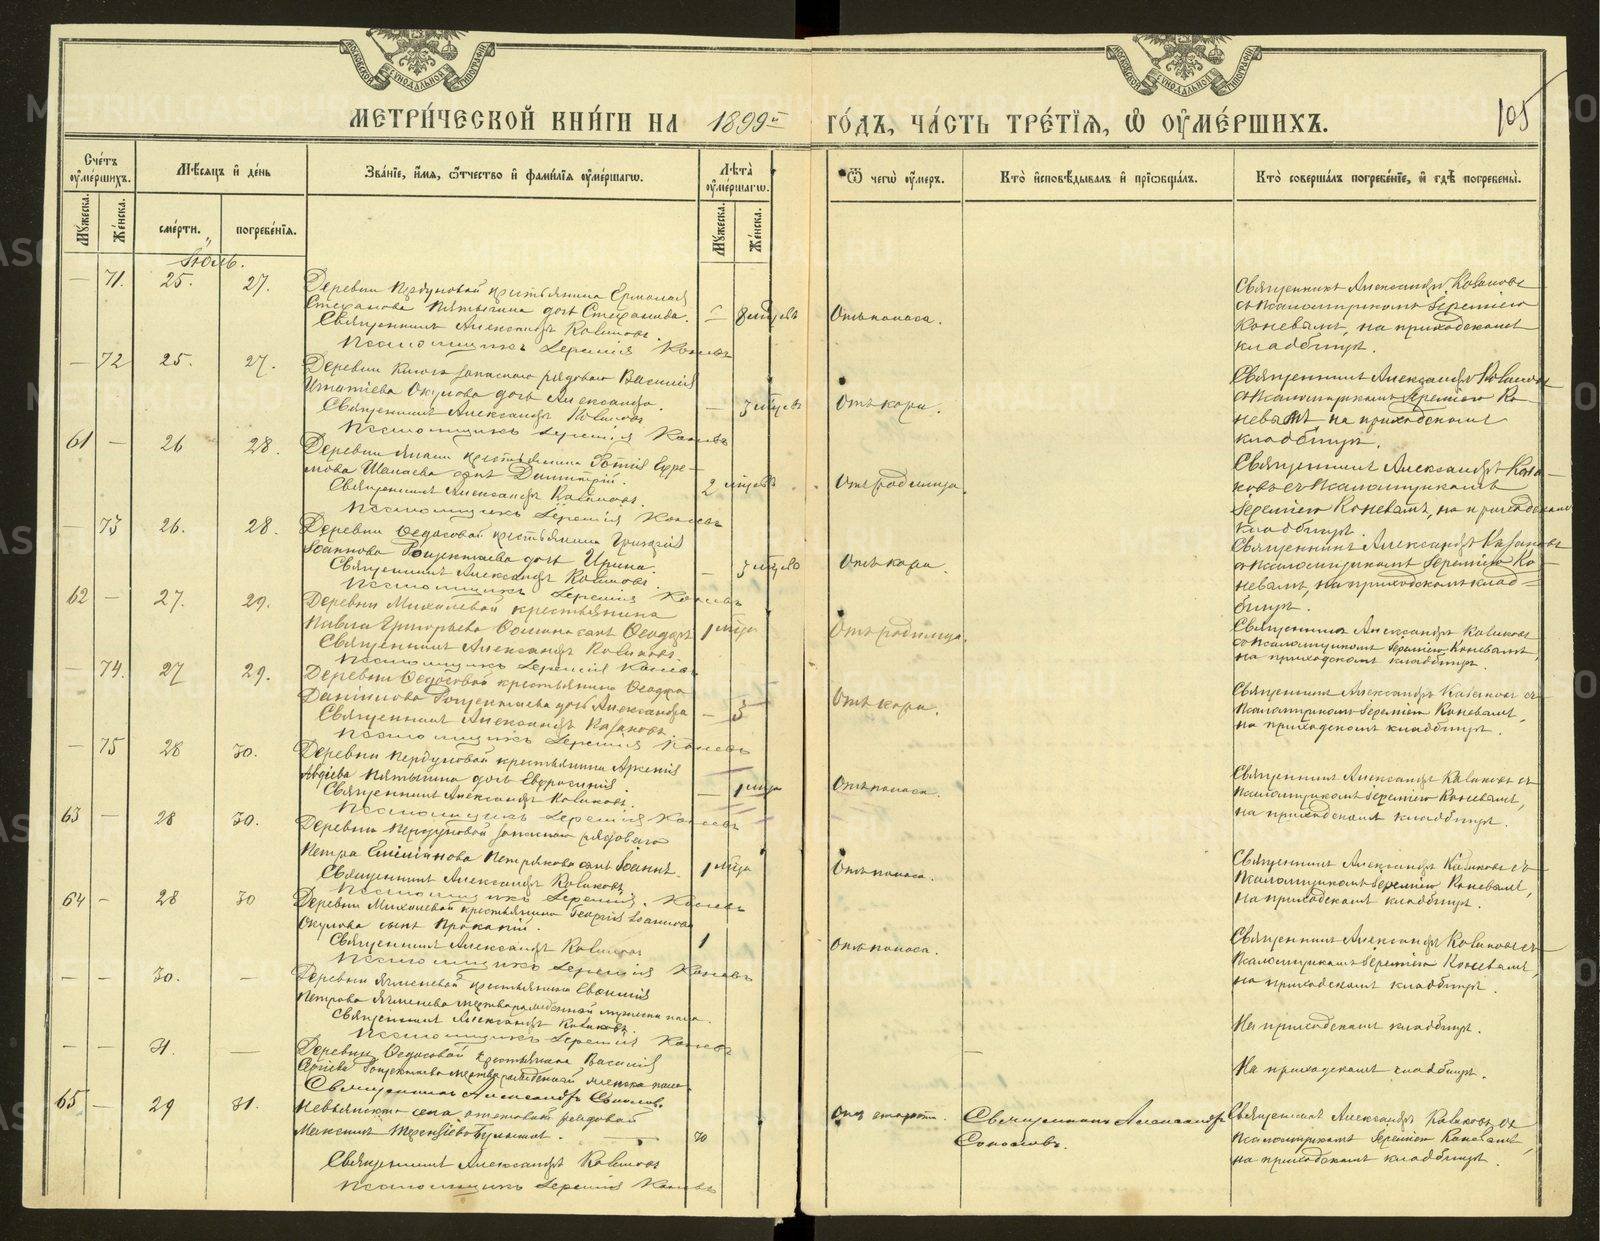 МЕТРИ́ЧЕСКОЙ КНИ́ГИ НА 1899й ГО́ДЪ, ЧА́СТЬ ТРЕ́ТІЯ, Ѿ ОУМЕ́РШИХЪ.
105
Сче́тъ оумершихъ.
Мѣсяцъ и день
Зва́ніе, и́мя, ѻтчество и фамилія оумершагѡ.
Лѣта оумершагѡ.
Ѿ чегѡ̀ оумеръ.
Кто̀ исповѣдывалъ и пріѡбщалъ.
Кто̀ соверша́лъ погребе́ніе, и гдѣ погребены̀.
Мужеска.
Женска.
смерти.
погребенія.
Мужеска.
Женска.
Іюль.
— 71. 25. 27.
Деревни Пердуновой крестьянина Ермолая
Стефанова Пятыгина дочь Стефанида.
Священникъ Александръ Казаковъ.
Псаломщикъ Іеремія Коневъ
Отъ поноса.
Священникъ Александръ Казаковъ
съ Псаломщикомъ Іереміею
Коневымъ, на приходскомъ
кладбищѣ.
— 72 25. 27.
Деревни запаснаго рядоваго Василія
Игнатіева Окулова дочь Александра.
Священникъ Александръ Казаковъ
Псаломщикъ Іеремія Коневъ
— 3 мѣсяцъ
Отъ кори.
Священникъ Александръ Казаковъ
съ Псаломщикомъ Іереміею Ко-
невымъ на приходскомъ
кладбищѣ.
61 — 26 28.
крестьянина Фотія Ефре-
мова сынъ Димитрій.
Священникъ Александръ Казаковъ.
Псаломщикъ Іеремія Коневъ
2
Отъ родимца.
Священникъ Александръ Каза-
ковъ съ Псаломщикомъ
Іереміею Коневымъ, на приходскомъ
кладбищѣ.
— 73 26. 28.
Деревни Ѳедосовой крестьянина Григорія
Іоаннова дочь Ирина.
Священникъ Александръ Казаковъ.
Псаломщикъ Іеремія Коневъ
— 3
Отъ кори.
Священникъ Александръ Казаковъ
съ Псаломщикомъ Іереміею Ко-
невымъ, на приходскомъ клад-
бищѣ.
62 — 27. 29.
Деревни Михалевой крестьянина
Павла Григорьева сынъ Ѳеодоръ
Священникъ Александръ Казаковъ
Псаломщикъ Іеремія Коневъ
1
Отъ родимца.
Священникъ Александръ Казаковъ
съ Псаломщикомъ Іереміею Коневымъ,
на приходскомъ кладбищѣ.
— 74. 27 29.
Деревни Ѳедосовой крестьянина Ѳеодора
Даніилова дочь Александра
Священникъ Александръ Казаковъ.
Псаломщикъ Іеремія Коневъ
— 3
Отъ кори.
Священникъ Александръ Казаковъ съ
Псаломщикомъ Іереміею Коневымъ,
на приходскомъ кладбищѣ.
— 75 28 30.
Деревни Пердуновой крестьянина Арсенія
Авдіева Пятыгина дочь Евфросинія.
Священникъ Александръ Казаковъ.
Псаломщикъ Іеремія Коневъ
— 1
Отъ поноса.
Священникъ Александръ Казаковъ съ
Псаломщикомъ Іереміею Коневымъ,
на приходскомъ кладбищѣ.
63 — 28 30.
Деревни Пердуновой запаснаго рядоваго
Петра сынъ Іоаннъ.
Священникъ Александръ Казаковъ.
Псаломщикъ Іеремія Коневъ
1
Отъ поноса.
Священникъ Александръ Казаковъ съ
Псаломщикомъ Іереміею Коневымъ,
на приходскомъ кладбищѣ.
64 — 28 30
Деревни Михалевой крестьянина Георгія Іоаннова
Окулова сынъ Прокопій.
Священникъ Александръ Казаковъ
Псаломщикъ Іеремія Коневъ
1
Отъ поноса.
Священникъ Александръ Казаковъ съ
Псаломщикомъ Іереміею Коневымъ,
на приходскомъ кладбищѣ.
— — 30. —
Деревни крестьянина
Петрова мертворожденный мужеска пола.
Священникъ Александръ Казаковъ.
Псаломщикъ Іеремія Коневъ
На приходскомъ кладбищѣ.
— — 31. —
Деревни Ѳедосовой крестьянина Василія
мертворожденный женска пола.
Священникъ Александръ Соколовъ.
На приходскомъ кладбищѣ.
65 — 29 31.
Невьянскаго села отставной рядовой
Максимъ
Священникъ Александръ Казаковъ
Псаломщикъ Іеремія Коневъ
70
Отъ старости.
Священникъ Александръ
Соколовъ.
Священникъ Александръ Казаковъ съ
Псаломщикомъ Іереміею Коневымъ,
на приходскомъ кладбищѣ.
METRIKI.GASO-URAL.RU